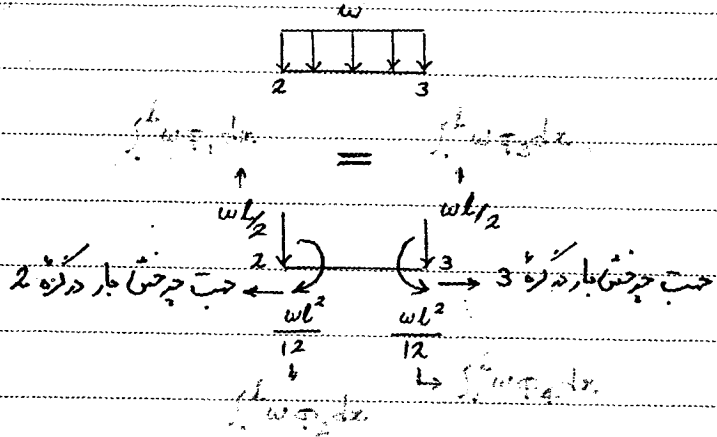 w
2 3
∫₀ᴸ w φ₁ dx = ∫₀ᴸ w φ₃ dx
wl/2 wl/2
2 3
جهت چرخش بار در گرهٔ 2
جهت چرخش بار در گرهٔ 3
wl²/12 wl²/12
∫₀ᴸ w φ₂ dx ∫₀ᴸ w φ₄ dx